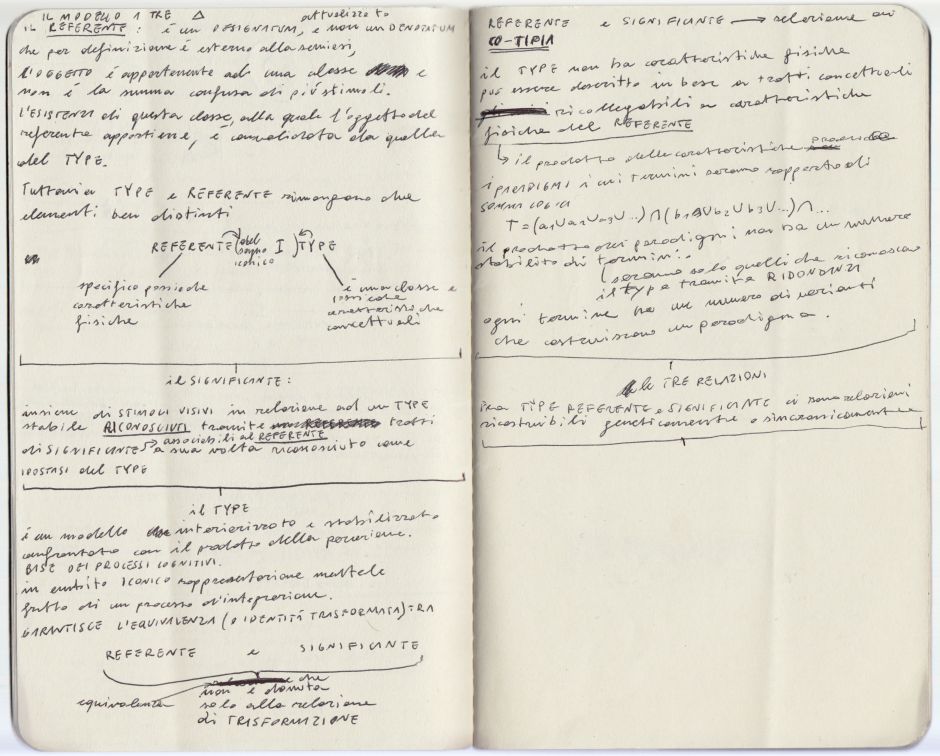 IL MODELLO 1 TRE △
attualizzato
IL REFERENTE: è un DESIGNATUM, e non un DENOTATUM
che per definizione è esterno alla semiosi,
l'OGGETTO è appartenente ad una classe e
non è la summa confusa di più stimoli.
L'ESISTENZA di questa classe, alla quale l'oggetto del
referente appartiene, è convalidata da quella
del TYPE.
Tuttavia TYPE e REFERENTE rimangono due
elementi ben distinti
REFERENTE (del segno iconico I) TYPE
specifico possiede
caratteristiche
fisiche
è una classe e
possiede
caratteristiche
concettuali
il SIGNIFICANTE:
insieme di STIMOLI VISIVI in relazione ad un TYPE
stabile RICONOSCIUTI tramite tratti
di SIGNIFICANTE → associabili al REFERENTE
a sua volta riconosciuto come
IPOSTASI del TYPE
il TYPE
è un modello interiorizzato e stabilizzato
confrontato con il prodotto della percezione.
BASE DEI PROCESSI COGNITIVI.
in ambito ICONICO rappresentazione mentale
frutto di un processo d'integrazione.
GARANTISCE L'EQUIVALENZA (O IDENTITÀ TRASFORMATA) TRA
REFERENTE e SIGNIFICANTE
equivalenza
che
non è dovuta
solo alla relazione
di TRASFORMAZIONE
REFERENTE e SIGNIFICANTE → relazione di
CO-TIPIA
il TYPE non ha caratteristiche fisiche
può essere descritto in base a tratti concettuali
ricollegabili a caratteristiche
fisiche del REFERENTE
↳ il prodotto delle caratteristiche
i PARADIGMI i cui termini saranno rapporto di
SOMMA LOGICA
T = (a1∪a2∪a3∪...) ∩ (b1∪b2∪b3∪...) ∩...
il prodotto dei paradigmi non ha un numero
stabilito di termini:
saranno solo quelli che riconoscono
il type tramite RIDONDANZA
ogni termine ha un numero di varianti
che costruiscono un paradigma.
le TRE RELAZIONI
tra TYPE REFERENTE e SIGNIFICANTE ci sono relazioni
ricostruibili geneticamente o sincronicamente